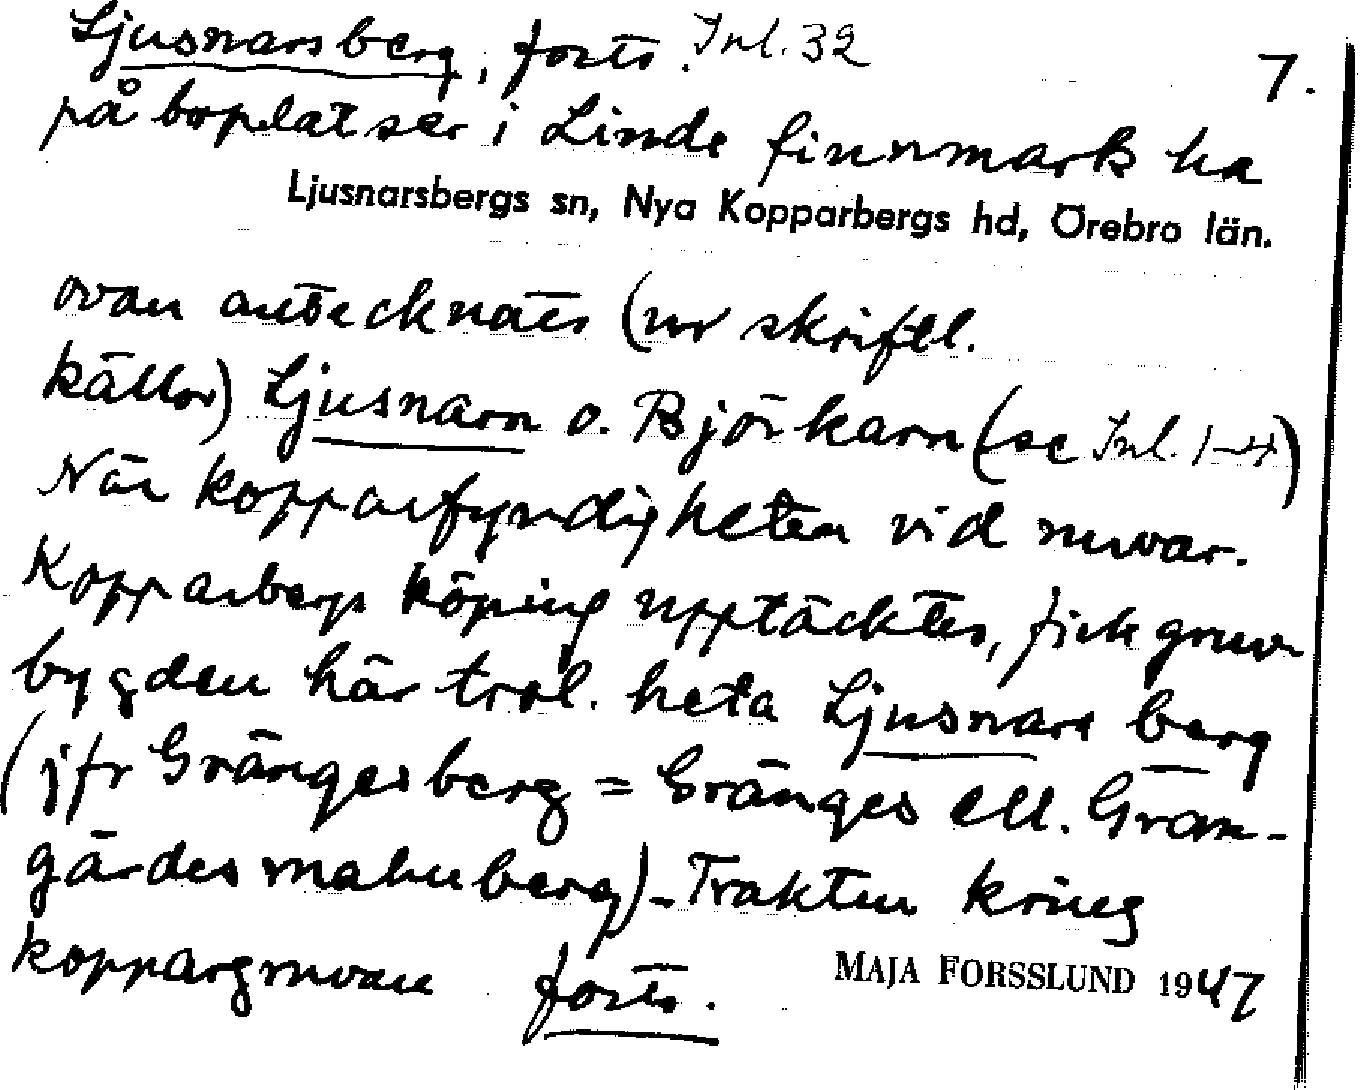 Ljusnarsberg, forts. Inl. 32 7.
på boplatser i Linde finnmark ha
Ljusnarsbergs sn, Nya Kopparbergs hd, Örebro län.
ovan antecknats (ur skriftl.
källor) Ljusnarn o. Björkarn (se Inl. 1-4)
När kopparfyndigheten vid nuvar.
Kopparbergs köping upptäcktes, fick gruv-
bygden här trol. heta Ljusnars berg
(jfr Grängesberg = Gränges ell. Gran-
gärdes malmberg) - Trakten kring
koppargruvan forts.
MAJA FORSSLUND 1947